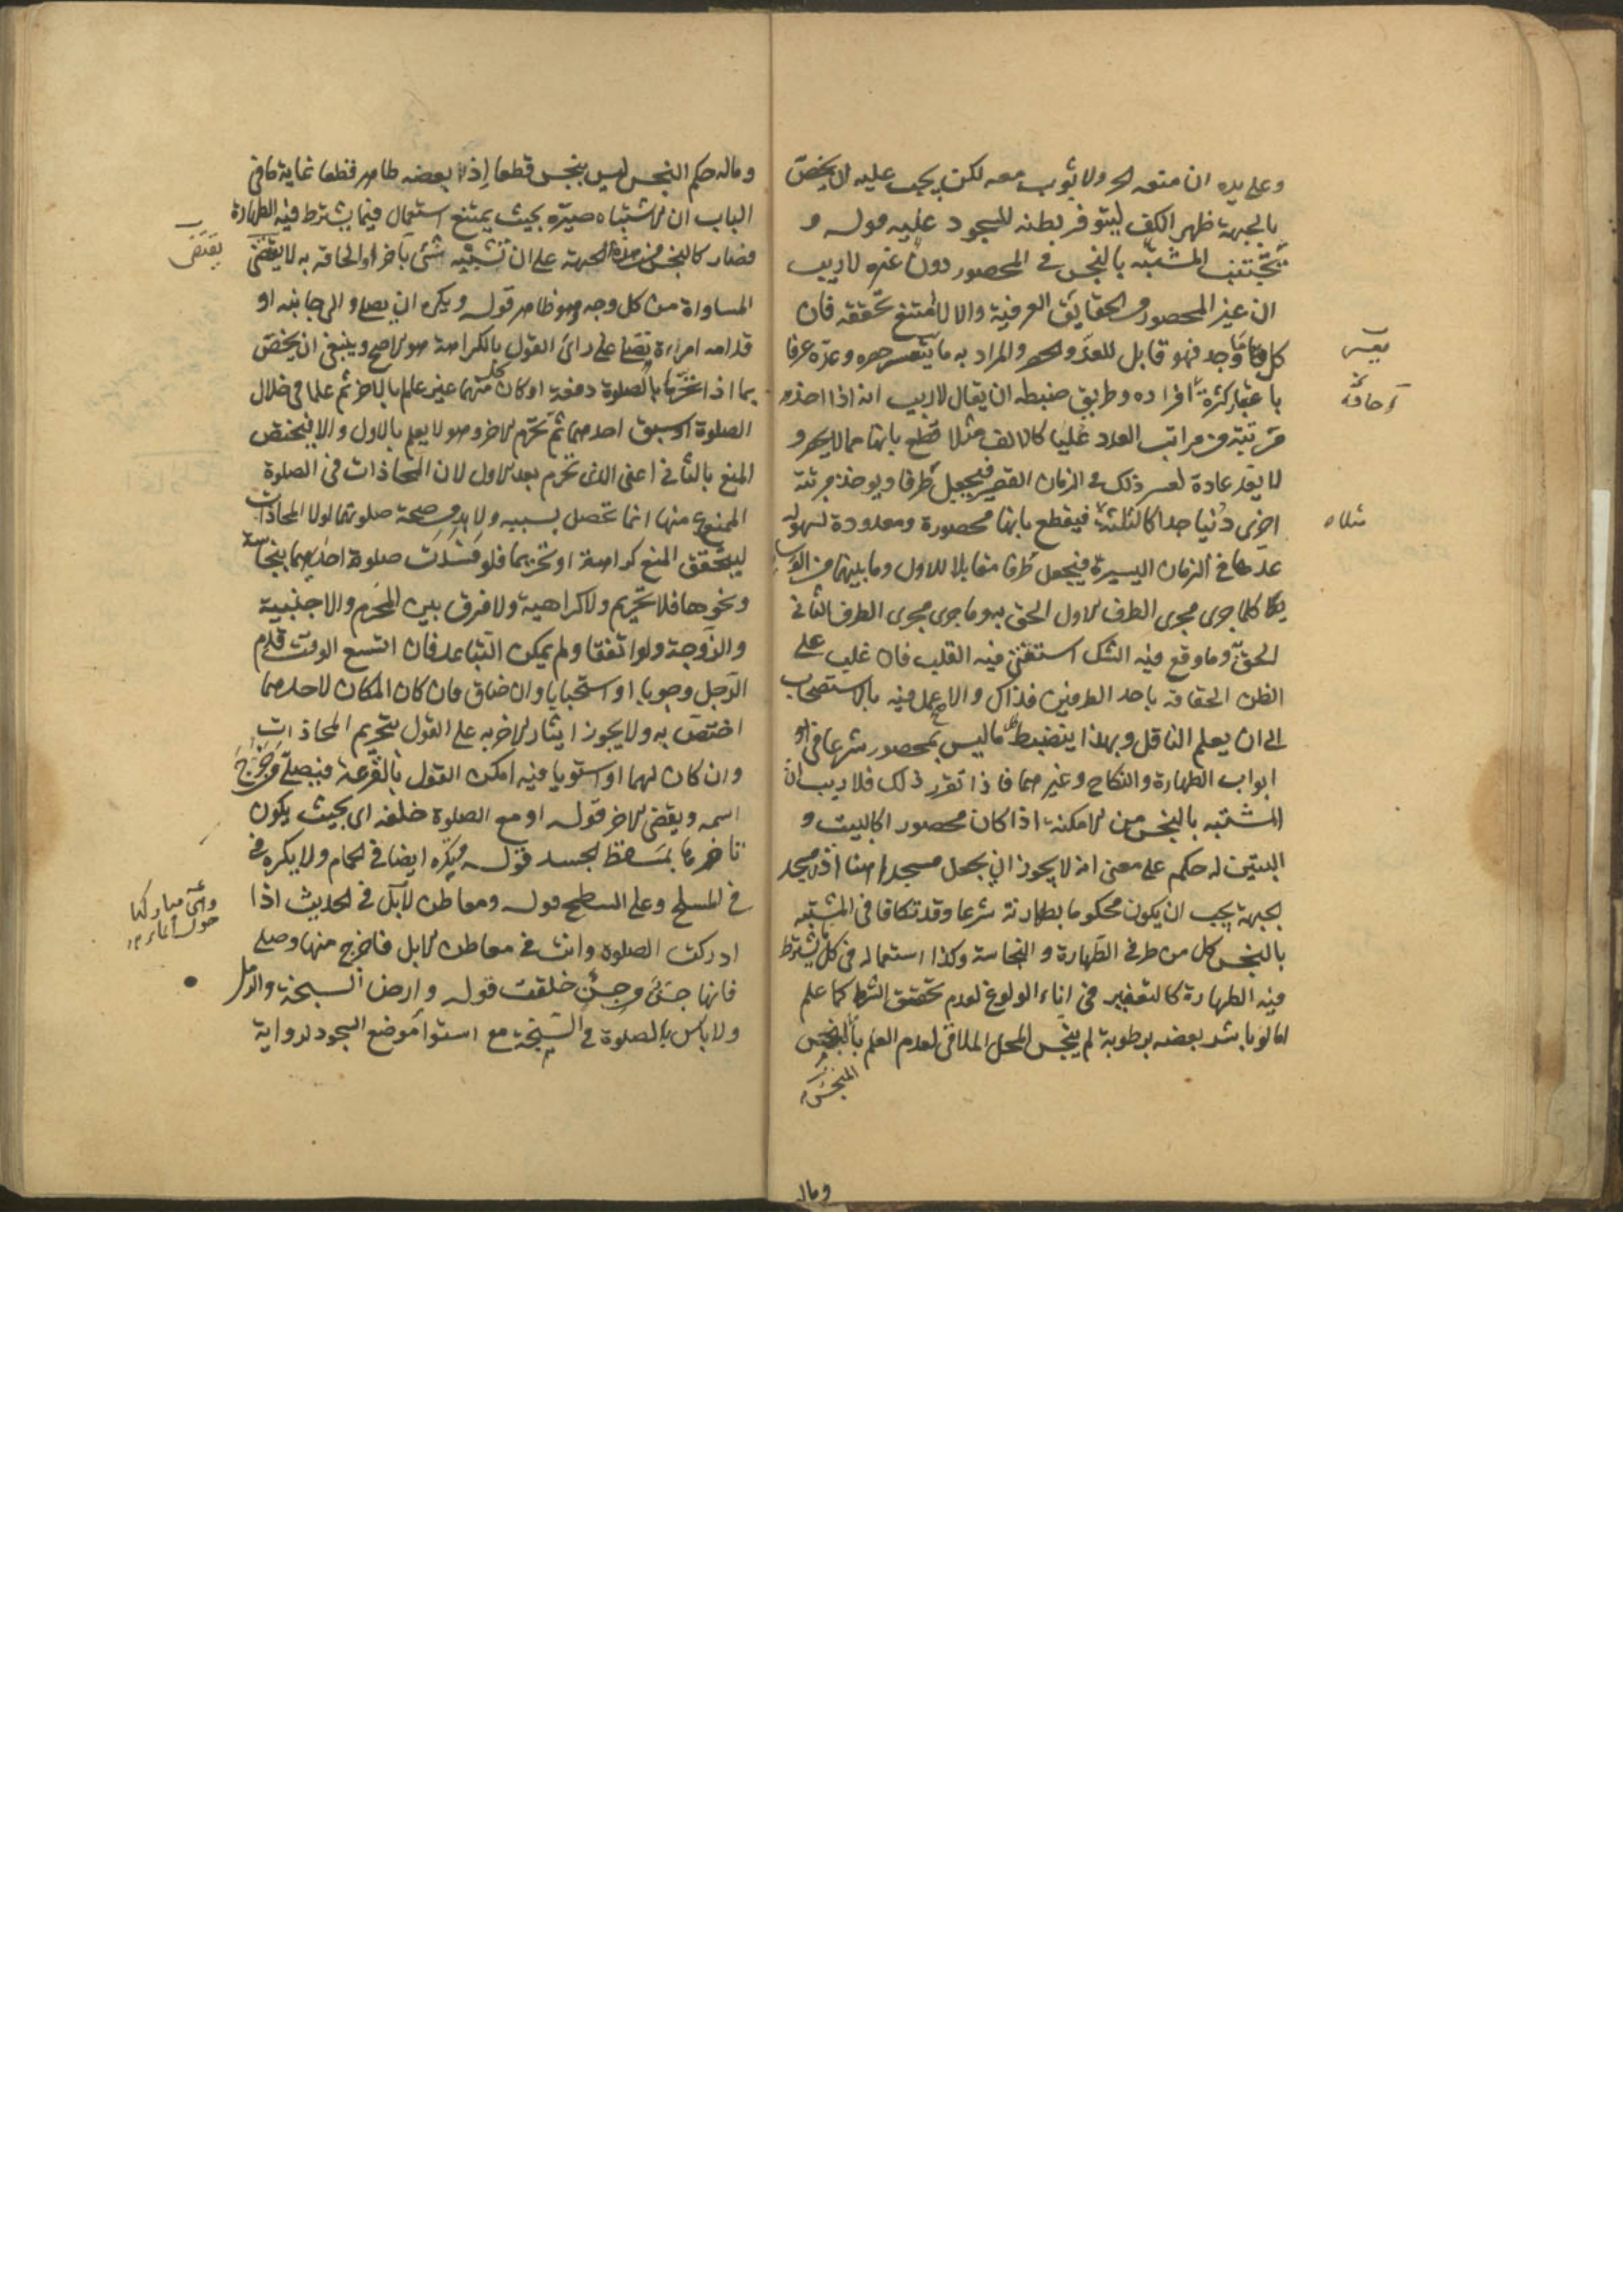 وعلى يده ان منعه الحر ولا ثوب معه لكن يجب عليه ان يخص
بالجبهة ظهر الكف ليتوفر بطنه للسجود عليه قوله و
يجتنب المشتبه بالنجس في المحصور دون غيره لا ريب
ان غير المحصور من الحقايق العرفية والا لامتنع تحققه فان
كل ما وجد فهو قابل للعد والحصر والمراد به ما يتعسر حصره وعده عرفا
باعتبار كثرة افراده وطريق ضبطه ان يقال لا ريب انه اذا اخذ
مرتبة من مراتب العدد عليا كالالف مثلا قطع بانها مما لا يحصر و
لا يعد عادة لعسر ذلك في الزمان القصير فيجعل طرفا ويوخذ مرتبة
اخرى دنيا جدا كالثلثة فيقطع بانها محصورة ومعدودة لسهولة
عدها في الزمان اليسيرة فيجعل طرفا مقابلا للاول وما بينهما من الوسايط
كلما جرى مجرى الطرف الاول الحق به وما جرى مجرى الطرف الثاني
الحق به وما وقع فيه الشك استفتي فيه القلب فان غلب على
الظن الحقاقه باحد الطرفين فذاك والا عمل فيه بالاستصحاب
الى ان يعلم الناقل وبهذا ينضبط ما ليس بمحصور شرعا في
ابواب الطهارة والنكاح وغيرهما فاذا تقرر ذلك فلا ريب ان
المشتبه بالنجس من الامكنة اذا كان محصورا كالبيت و
البيتين له حكم على معنى انه لا يجوز ان يجعل مسجدا هنا اذ مسجد
الجبهة يجب ان يكون محكوما بطهارته شرعا وقد تكافا في المشتبه
بالنجس كل من طرفي الطهارة والنجاسة وكذا استعماله في كل يشترط
فيه الطهارة كالتعفير في اناء الولوغ لعدم تحقق الشرط كما علم
اما لو باشر بعضه برطوبة لم ينجس المحل الملاقي لعدم العلم بالنجس
المنجس
يعسر
مثلا
وماله
وماله حكم النجس ليس بنجس قطعا اذ بعضه طاهر قطعا غاية ما في
الباب ان الاشتباه صيره بحيث يمتنع استعماله فيما يشترط فيه الطهارة
فصار كالنجس من هذه الجهة على ان تشبيه شئ بآخر او الحاقه به لا يقتضى
المساواة من كل وجه وهو ظاهر قوله ويكره ان يصلى والى جانبه او
قدامه امراءة تصلى على رائ القول بالكراهة هو الاصح وينبغي ان يخص
بما اذا تحرما بالصلوة دفعة او كان كل منهما غير عالم بالاخر ثم علما في خلال
الصلوة او سبق احدهما ثم تحرم الاخر وهو لا يعلم بالاول والا فيختص
المنع بالثاني اعنى الذى تحرم بعد الاول لان المحاذات في الصلوة
الممنوع منها انما تحصل بسببه ولا بد من صحة صلوتهما لولا المحاذات
ليتحقق المنع كراهة او تحريما فلو فسدت صلوة احدهما بنجاسة
ونحوها فلا تحريم ولا كراهية ولا فرق بين المحرم والاجنبية
والزوجة ولو اتفقا ولم يمكن التباعد فان اتسع الوقت قدم
الرجل وجوبا او استحبابا وان ضاق فان كان المكان لاحدهما
اختص به ولا يجوز ايثار الاخر به على القول بتحريم المحاذات
وان كان لهما او استويا فيه امكن القول بالقرعة فيصلى من خرج
اسمه ويقضى الاخر قوله او مع الصلوة خلفه اى بحيث يكون
تاخرها بمسقط الجسد قوله ويكره ايضا في الحمام ولا يكره في
في المسلخ وعلى السطح قوله ومعاطن الابل في الحديث اذا
ادركت الصلوة وانت في معاطن الابل فاخرج منها وصلى
فانها جن من جن خلقت قوله وارض السبخة والرمل
ولا باس بالصلوة في السبخة مع استوا موضع السجود لرواية
يقتضى
وهى مباركها
حول الماء